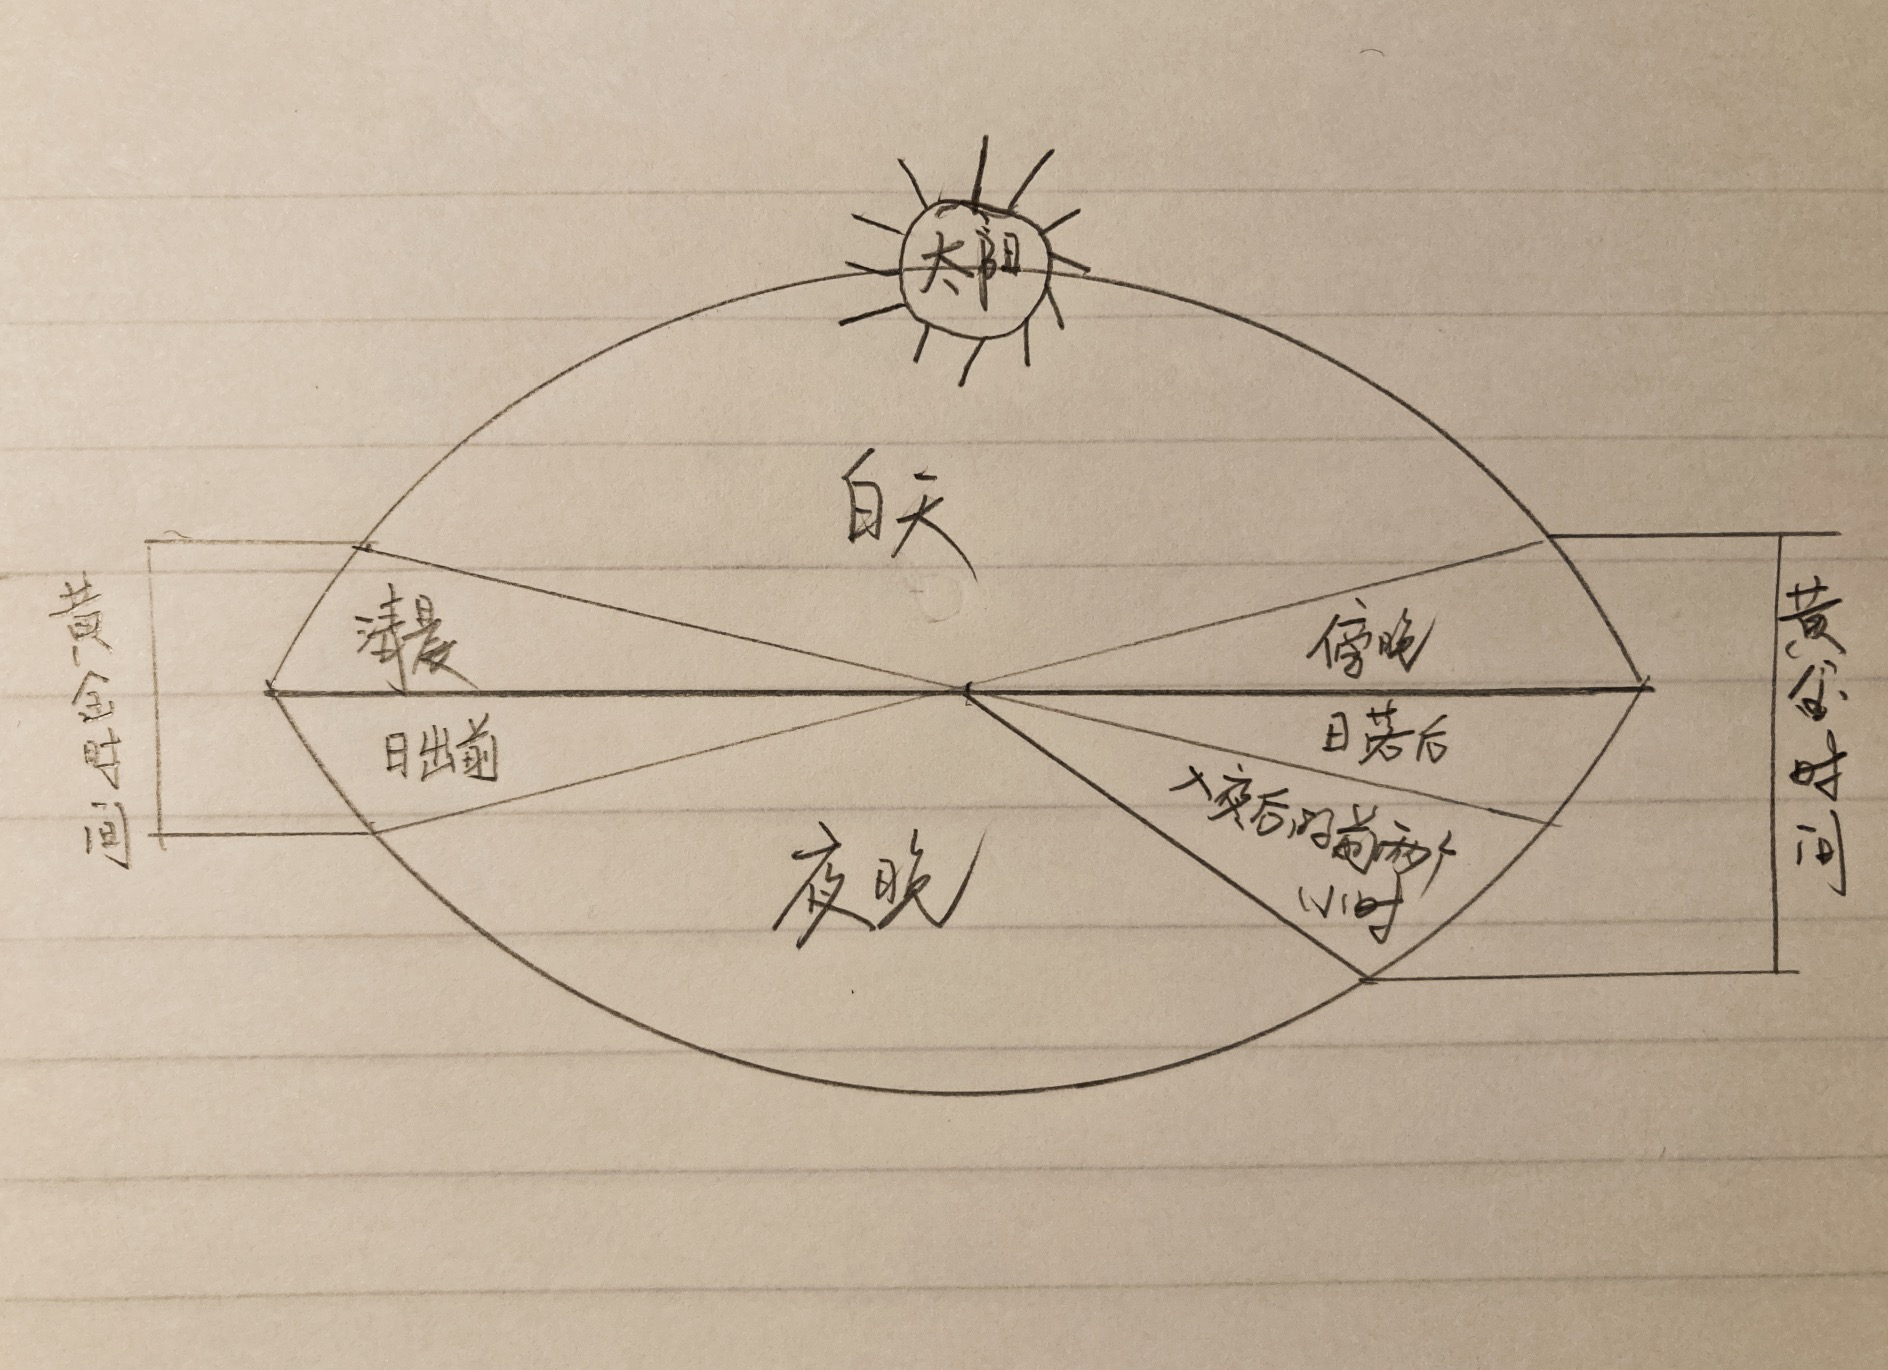 太阳
白天
清晨
傍晚
日出前
日落后
入夜后的前两个
小时
夜晚
黄金时间
黄金时间